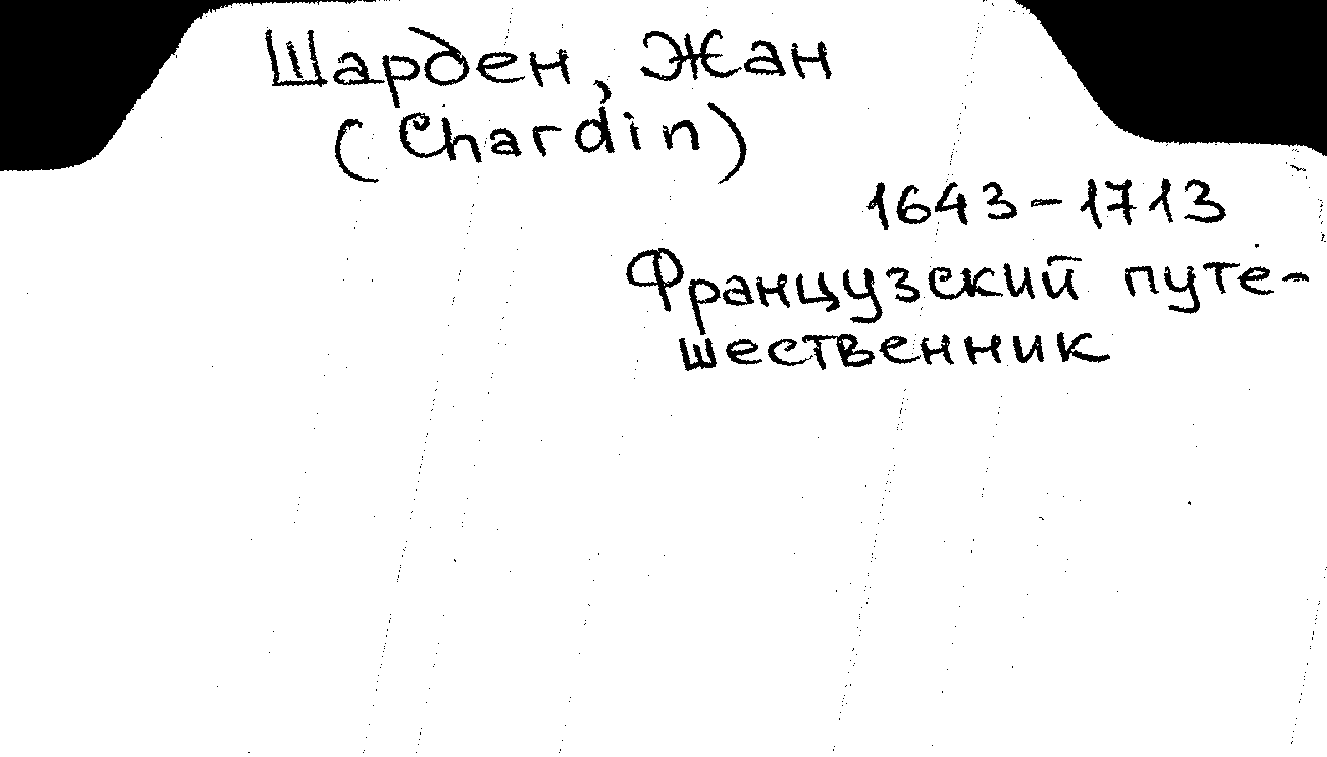 Шарден, Жан
(Chardin)
1643-1713
Французский путе-
шественник